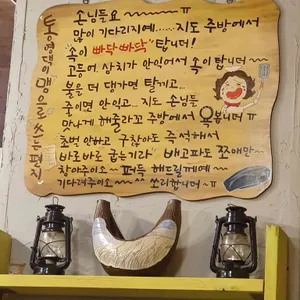 통영댁이 맴으로 쓰는 편지
손님들요 ~~~ ㅠ
많이 기다리지예.....지도 주방에서
속이 빠닥빠닥" 탑니더!
고등어, 삼치가 안익어서 속이 탑니더~
불을 더 댕가면 탈끼고...
줄이면 안익고...지도 손님들
맛나게 해줄라꼬 주방에서 욕봅니더 ㅠ
초벌 안하고 구찮아도 즉석해서
바로바로 굽는기라~ 배고파도 쪼매만~
참아주이소 ~ 퍼뜩 해드릴께예~
기다려주이소 ~~~ 쏘리합니더~ ㅠ